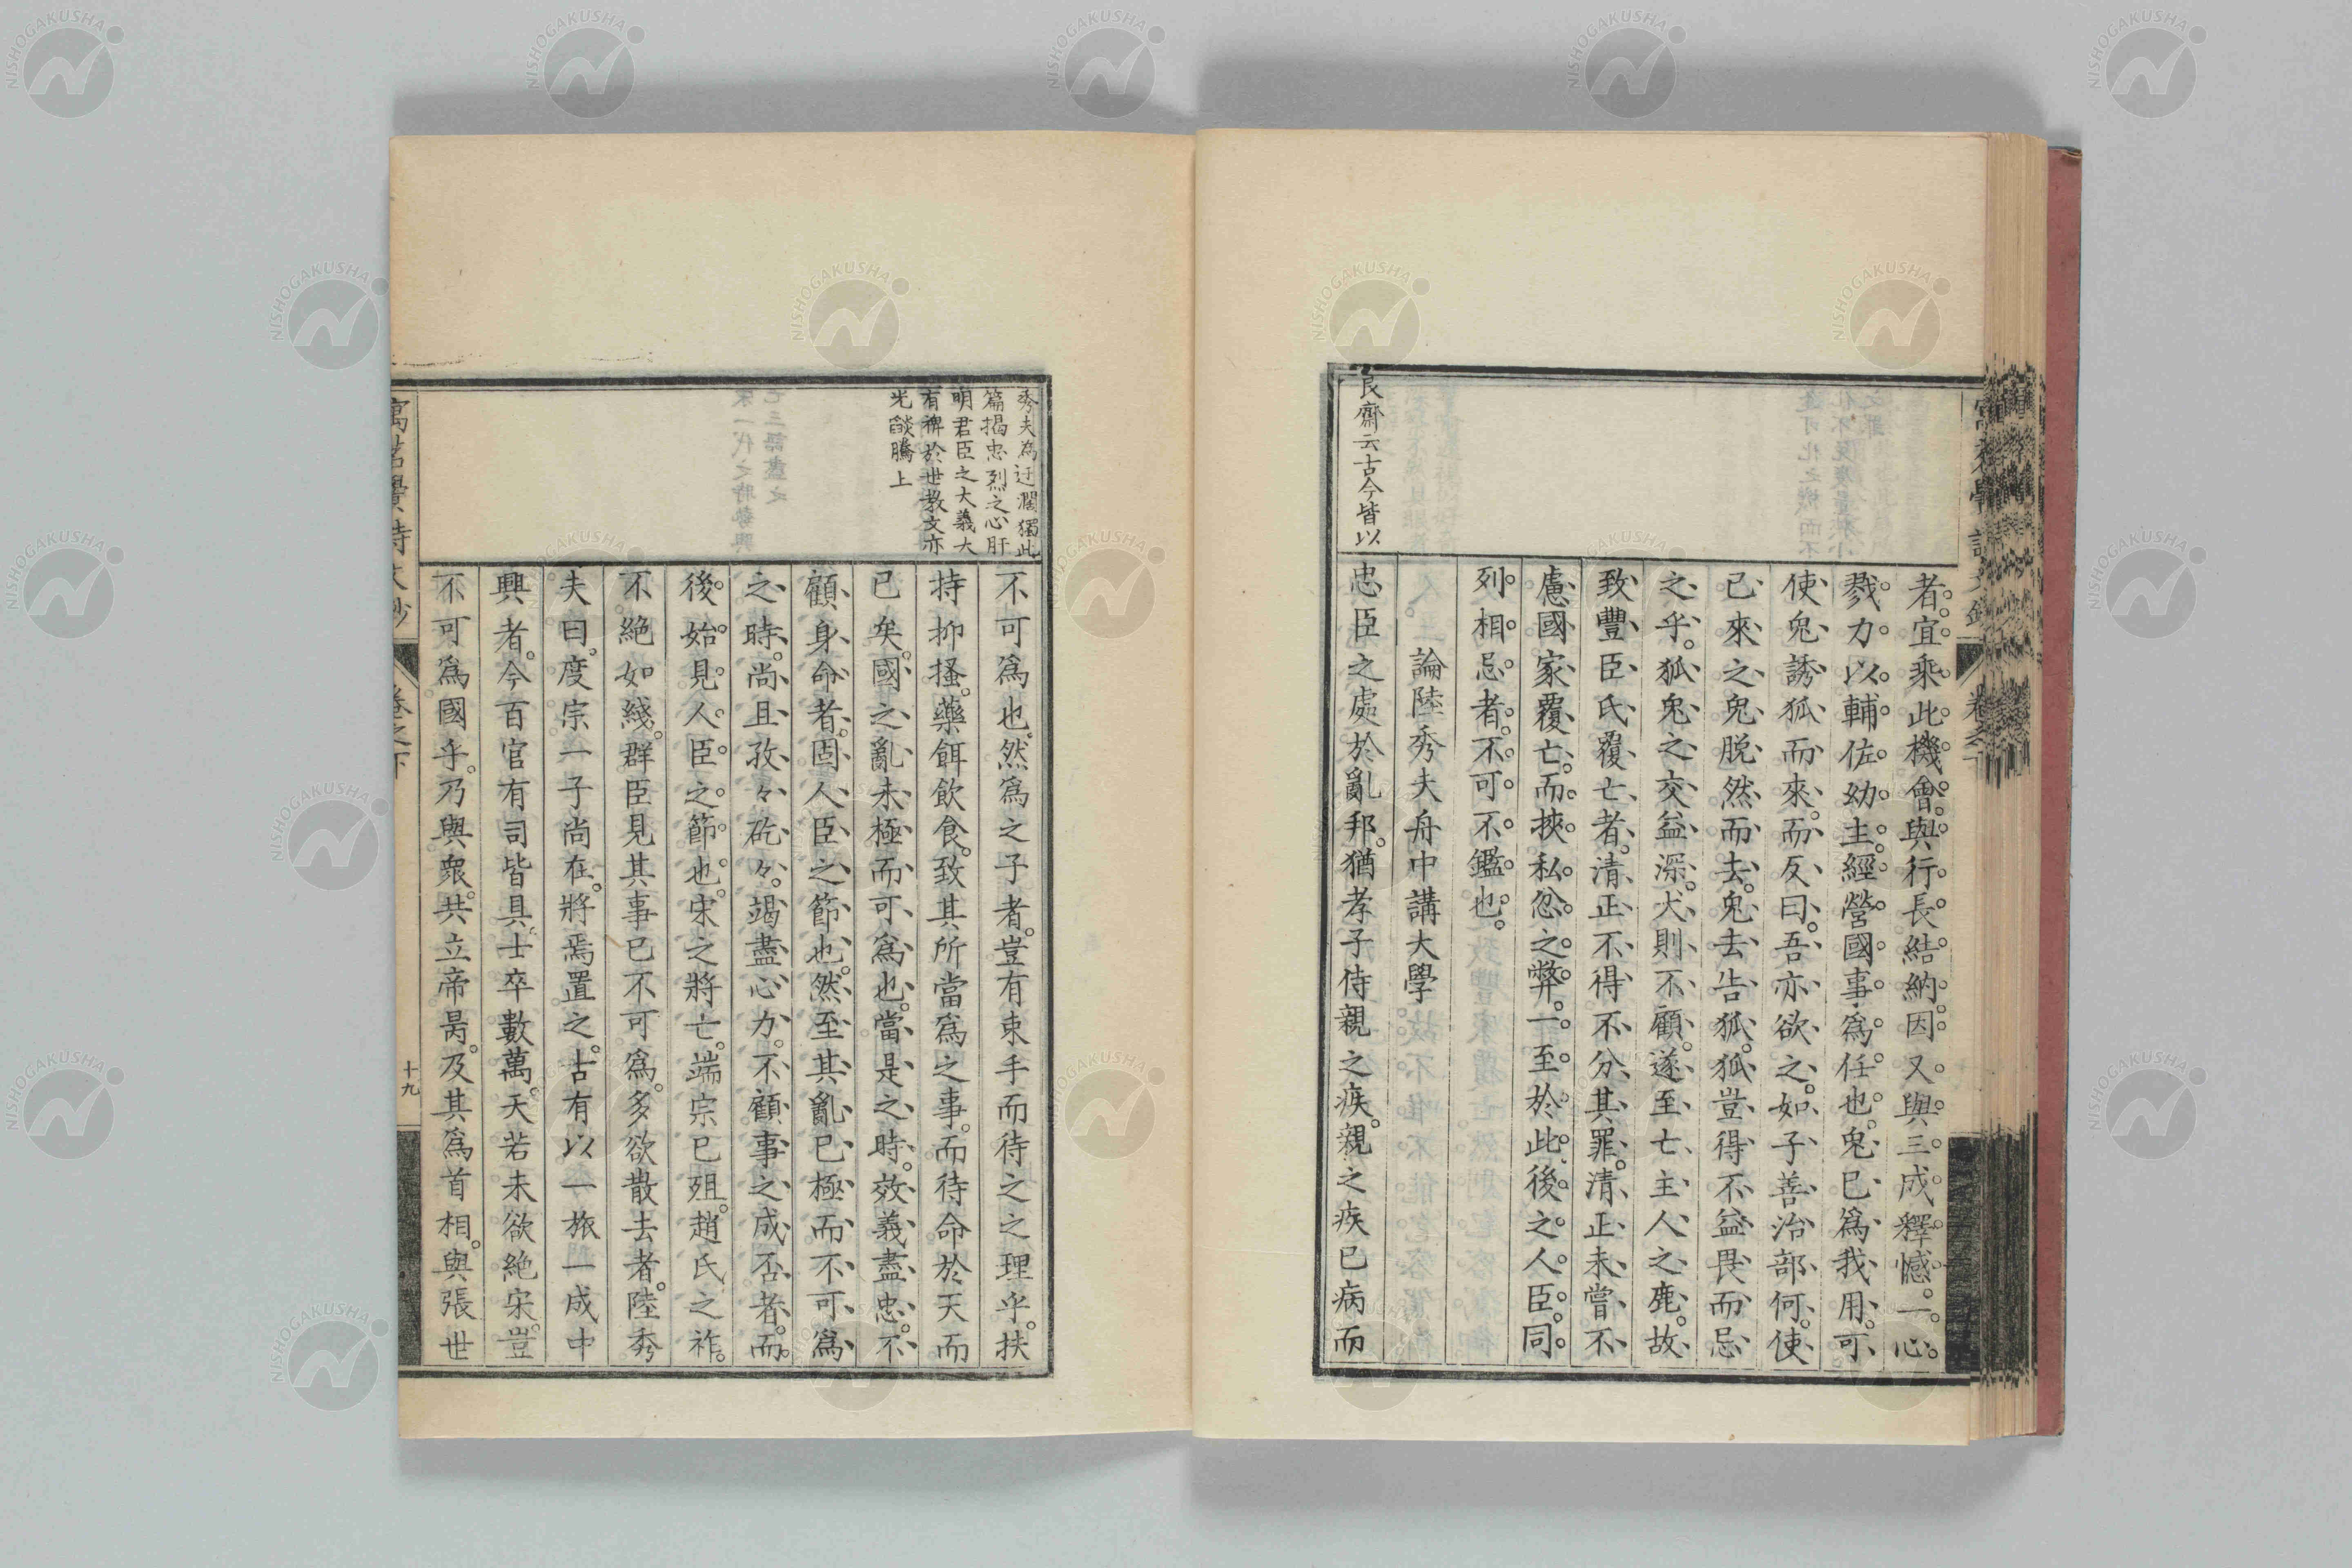 者。宜乘此機會。與行長結納。因又與三成釋憾。一心
戮力。以輔佐幼主。經營國事。為任也。兔已爲我用。可
使兔誘狐而來。而反曰。吾亦欲之。如子善治部何。使
已來之兔脱然而去。兔去告狐。狐豈得不益畏而忌
之乎。狐兔之交益深。犬則不顧。遂至亡主人之鹿。故
致豐臣氏覆亡者。清正不得不分其罪。清正未嘗不
慮國家覆亡。而挾私忿之弊。一至於此。後之人臣。同
列相忌者。不可不鑑也。
論陸秀夫舟中講大學
忠臣之處於亂邦。猶孝子侍親之疾。親之疾已病而
艮齋云古今皆以
卷之下
不可爲也。然爲之子者。豈有束手而待之之理乎。扶
持抑搔。藥餌飲食。致其所當爲之事。而待命於天而
已矣。國之亂未極而可爲也。當是之時。效義盡忠。不
顧身命者。固人臣之節也。然至其亂已極而不可爲
之時。尚且孜々矻々。竭盡心力。不顧事之成否者。而
後始見人臣之節也。宋之將亡。端宗已殂。趙氏之祚
不絶如綫。群臣見其事已不可爲。多欲散去者。陸秀
夫曰。度宗一子尚在。將焉置之。古有以一旅一成中
興者。今百官有司皆具。士卒數萬。天若未欲絶宋。豈
不可爲國乎。乃與衆共立帝昺。及其爲首相。與張世
秀夫為迂濶獨此
篇揭忠烈之心肝
明君臣之大義大
有裨於世教文亦
光燄騰上
卷之下
十九
NISHOGAKUSHA